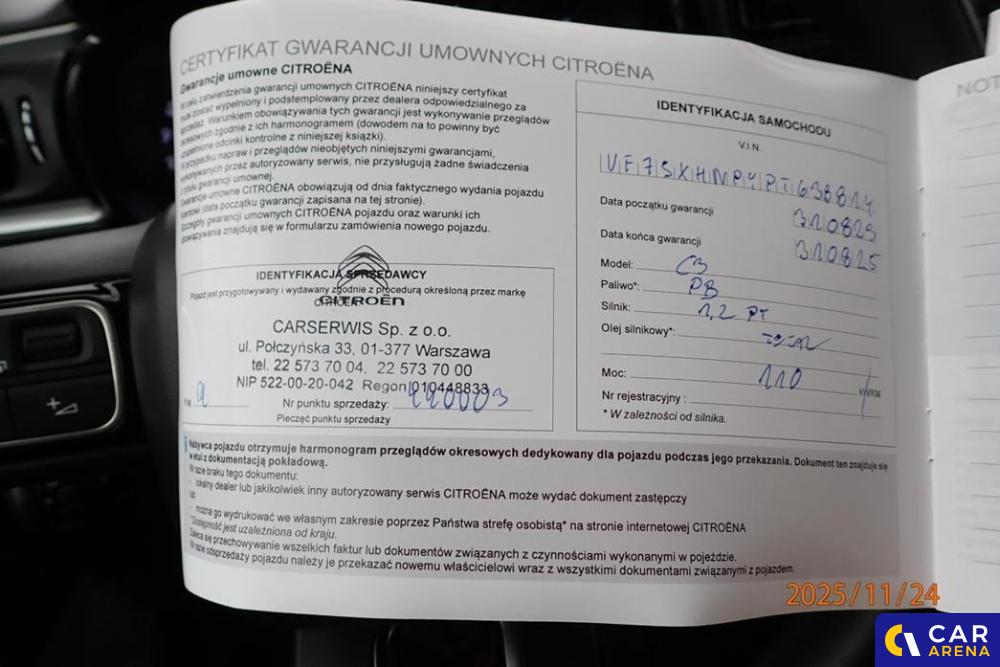 CERTYFIKAT GWARANCJI UMOWNYCH CITROËNA
Gwarancje umowne CITROËNA
W celu zatwierdzenia gwarancji umownych CITROËNA niniejszy certyfikat
musi zostać wypełniony i podstemplowany przez dealera odpowiedzialnego za
sprzedaż. Warunkiem obowiązywania tych gwarancji jest wykonywanie przeglądów
okresowych zgodnie z ich harmonogramem (dowodem na to powinny być
wypełnione odcinki kontrolne z niniejszej książki).
W przypadku napraw i przeglądów nieobjętych niniejszymi gwarancjami,
wykonywanych przez autoryzowany serwis, nie przysługują żadne świadczenia
z tytułu gwarancji umownej.
Gwarancje umowne CITROËNA obowiązują od dnia faktycznego wydania pojazdu
klientowi (data początku gwarancji zapisana na tej stronie).
Szczegóły gwarancji umownych CITROËNA pojazdu oraz warunki ich
obowiązywania znajdują się w formularzu zamówienia nowego pojazdu.
IDENTYFIKACJA SPRZEDAWCY
Pojazd jest przygotowywany i wydawany zgodnie z procedurą określoną przez markę
CITROËN
CARSERWIS Sp. z o.o.
ul. Połczyńska 33, 01-377 Warszawa
tel. 22 573 70 04, 22 573 70 00
NIP 522-00-20-042 Regon 010448833
Nr punktu sprzedaży:
Pieczęć punktu sprzedaży
IDENTYFIKACJA SAMOCHODU
V.I.N.
VF7SXHNPYPT638814
Data początku gwarancji
310823
Data końca gwarancji
310825
Model: C3
Paliwo*: PB
Silnik: 1,2 PT
Olej silnikowy*:
Moc: 110
Nr rejestracyjny :
* W zależności od silnika.
Nabywca pojazdu otrzymuje harmonogram przeglądów okresowych dedykowany dla pojazdu podczas jego przekazania. Dokument ten znajduje się
w etui z dokumentacją pokładową.
W razie braku tego dokumentu:
- lokalny dealer lub jakikolwiek inny autoryzowany serwis CITROËNA może wydać dokument zastępczy
lub
- można go wydrukować we własnym zakresie poprzez Państwa strefę osobistą* na stronie internetowej CITROËNA
*Dostępność jest uzależniona od kraju.
Zaleca się przechowywanie wszelkich faktur lub dokumentów związanych z czynnościami wykonanymi w pojeździe.
W razie odsprzedaży pojazdu należy je przekazać nowemu właścicielowi wraz z wszystkimi dokumentami związanymi z pojazdem.
NOT
2025/11/24
CAR
ARENA